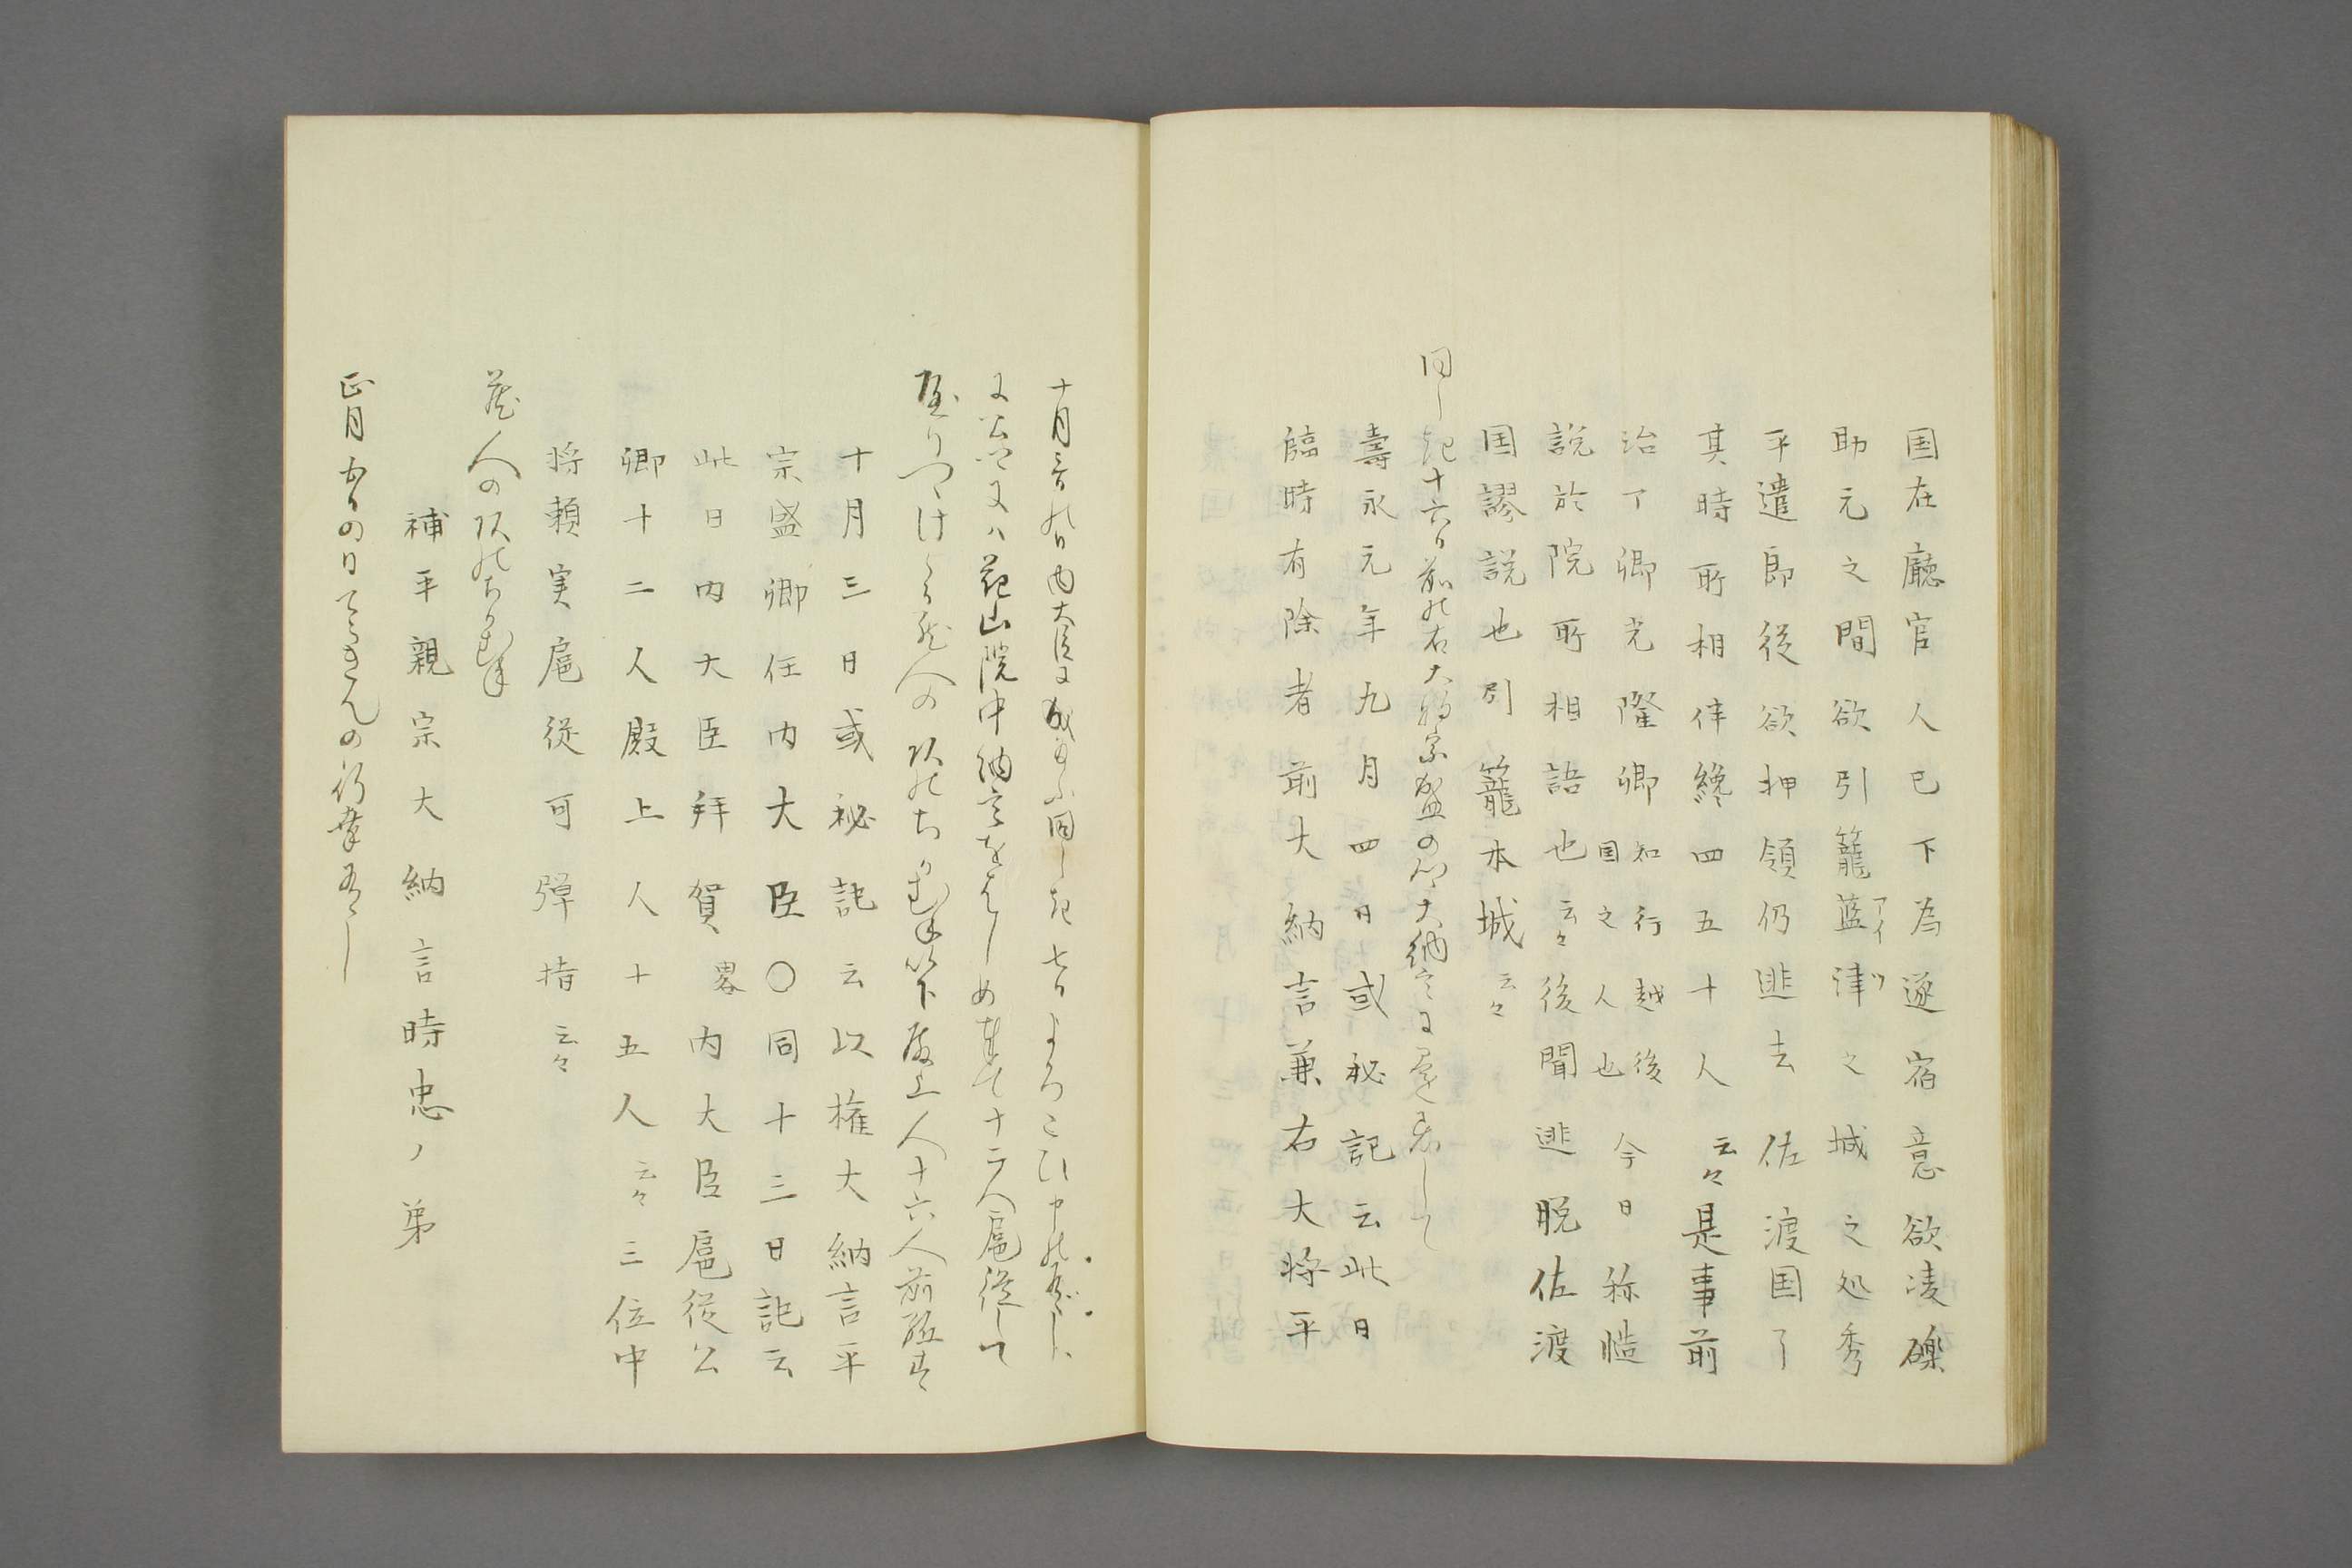 国在廳官人已下為遂宿意欲凌礫
助元之間欲引籠藍津之城之処秀
アイツ
平遣郎従欲押領仍逃去佐渡国了
其時所相伴纔四五十人云々是事前
治了卿光隆卿知行越後国之人也今日称慥
説於院所相語也云々後聞逃脱佐渡
国謬説也引籠本城云々
同し 十六日前の右大将宗盛の 大納言に して
壽永元年九月四日或秘記云此日
臨時有除者前大納言兼右大将平
十月三日 内大臣に 同し 七日よろこひ申
花山院中納言をはしめ 十二人扈従して
蔵人の頭 以下殿上人十六人前駈す
十月三日或秘記云以権大納言平
宗盛卿任内大臣〇同十三日記云
此日内大臣拝賀畧内大臣扈従公
卿十二人殿上人十五人云々三位中
将頼実扈従可弾指云々
蔵人の頭
補平親宗大納言時忠ノ弟
正月 の日てうきんの行幸